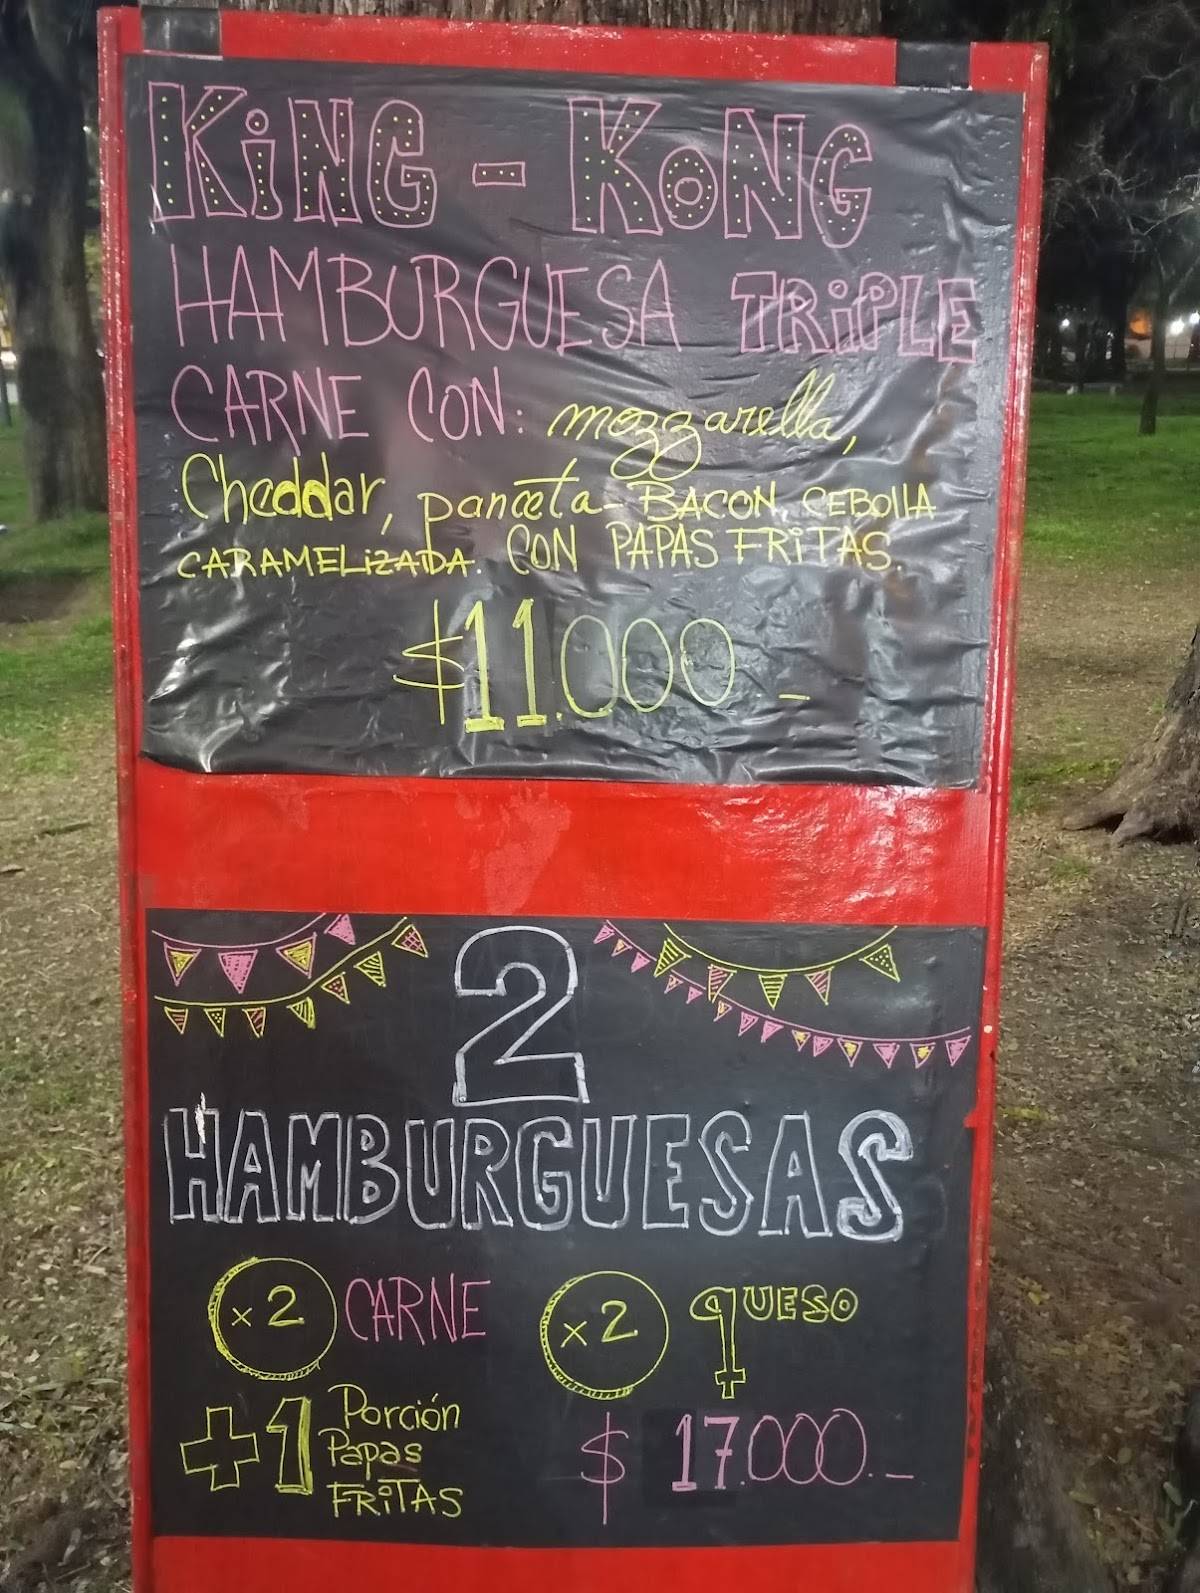 KiNG - KoNG
HAMBURGUESA TRiPLE
CARNE CON: mozzarella,
Cheddar, panceta - BACON, CEBOllA
CARAMELiZADA. CON PAPAS FRiTAS.
$11.000 _
2
HAMBURGUESAS
x2 CARNE x2 QUESO
+1 Porción
Papas
FRiTAS
$ 17.000._